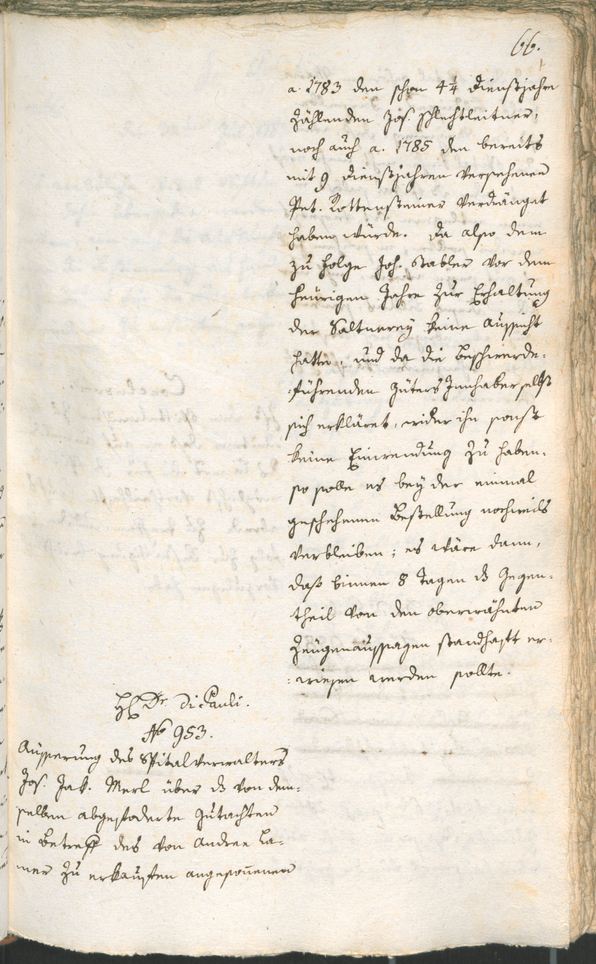 66.
a. 1783 den schon 44 Dienstjahre
zählenden Jos. Schlechtleitner,
noch auch a. 1785 den bereits
mit 9 Dienstjahren versehenen
Pet. Rottensteiner verdrängt
haben würde. Da also dem
zu folge Joh. Stabler vor dem
heurigen Jahre zur Erhaltung
der Saltnerey keine Aussicht
hatte, und da die beschwerde-
führenden Güters Innhaber selbst
sich erkläret, wider ihn sonst
keine Einwendung zu haben,
so solle es bey der einmal
geschehenen Bestellung
verbleiben; es wäre dann,
daß binnen 8 Tagen dz Gegen-
theil von den oberwähnten
Zeugenaussagen standhaft er-
wiesen werden sollte.
H Dr. Di Pauli.
No 953.
Äusserung des Spitalverwalters
Jos. Jak. Merl über dz von dem-
selben abgefoderte Gutachten
in Betreff des von Andree La-
ner zu erkaufen angesonnenen